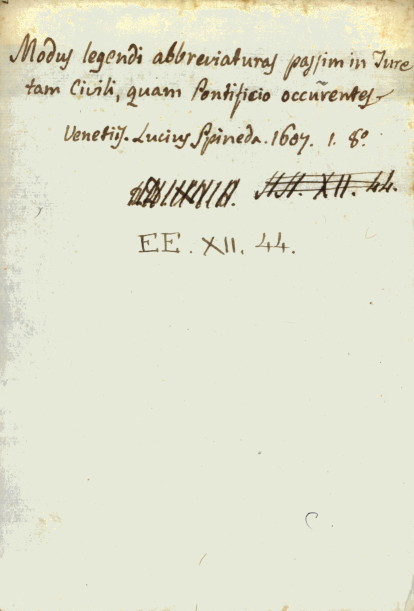 Modus legendi abbreviaturas passim in Jure
tam Civili, quam Pontificio occur̃entes
Venetijs. Lucius Spineda. 1607. 1. 8°.
XII. 44.
EE. XII. 44.